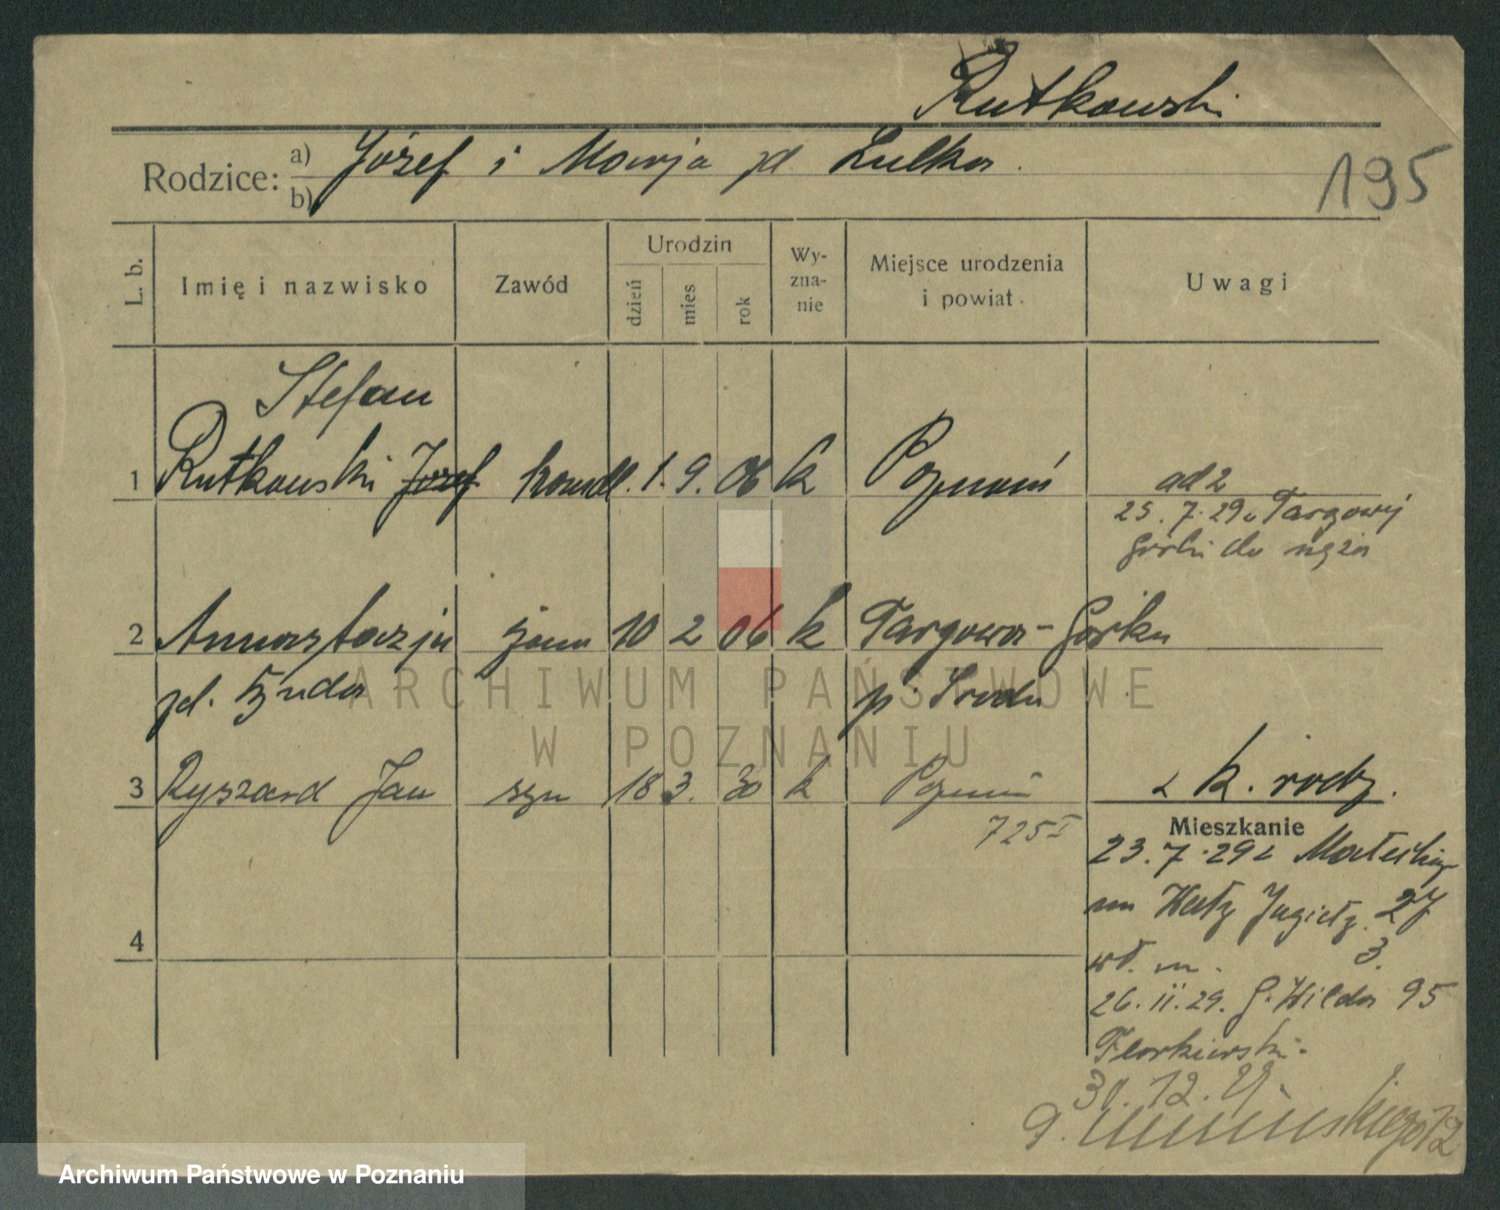 Rutkowski
Rodzice: a) Józef i Marja zd. Lulka
b)
195
L. b. Imię i nazwisko Zawód Urodzin dzień mies rok Wy- zna- nie Miejsce urodzenia i powiat Uwagi
Stefan
1 Rutkowski Józef 1. 9. 06 k Poznań
ad 2
25. 7. 29 z Targowej
Górki do męża
2 Annastazja żona 10 2 06 k Targowa-Górka
zd. p. Środa
3 Ryszard Jan syn 18 3. 30 k Poznań
725 I
z k. rodz.
Mieszkanie
23. 7. 29 z
27
3.
4
26. 11. 29. G. Wilda 95
Florkiewski.
30. 12. 29.
12
ARCHIWUM PAŃSTWOWE
W POZNANIU
Archiwum Państwowe w Poznaniu